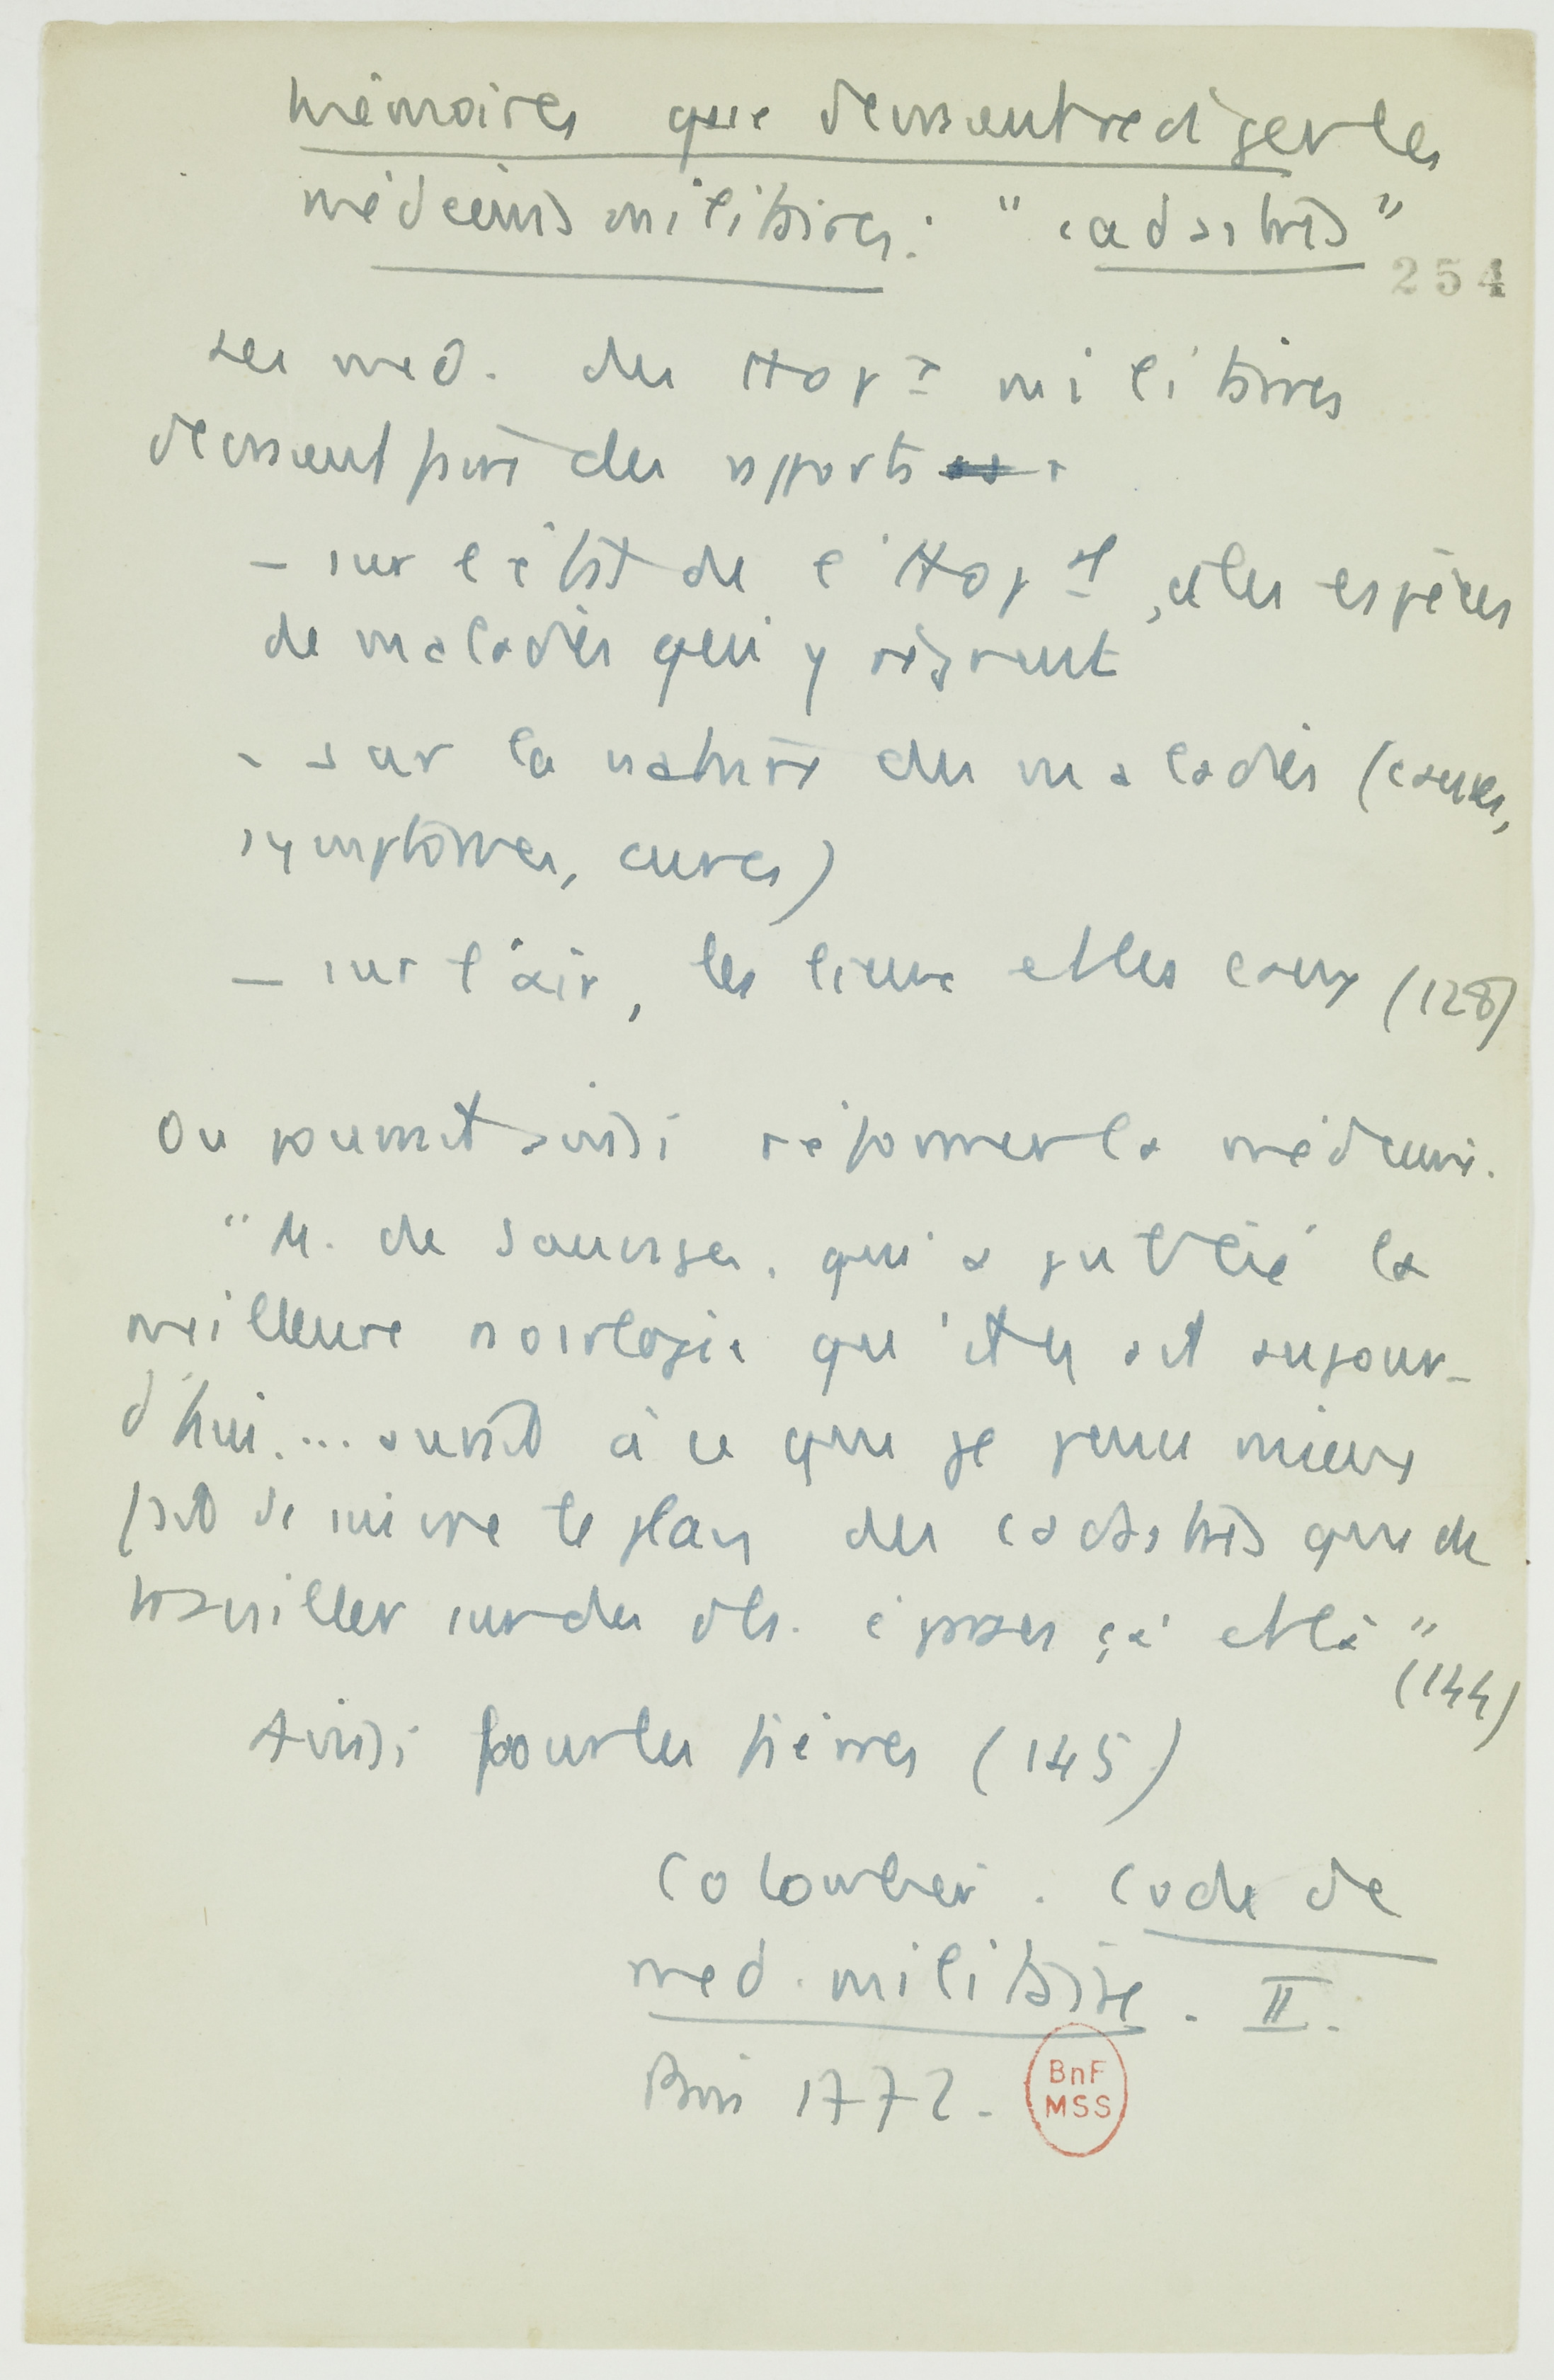 Mémoires que devraient rediger les
médecins militaires : " cadastres "
254
Les med. des Hopx militaires
devraient faire des rapports
- sur l'état de l'Hopal, et les espèces
de maladies qui y règnent
- sur la nature des maladies (causes,
symptômes, cures)
- sur l'air, les lieux et les eaux (128)
On pourrait ainsi réformer la médecine.
" M. de Sauvages, qui a publié la
meilleure nosologie qu'
aujour-
d'hui.... aurait à ce que je pense mieux
fait de suivre le plan des cadastres que de
travailler sur des obs. éparses çà et là "
(144)
Ainsi pour les fièvres (145)
Colombier. Code de
med. militaire. II.
Paris 1772.
BnF
MSS